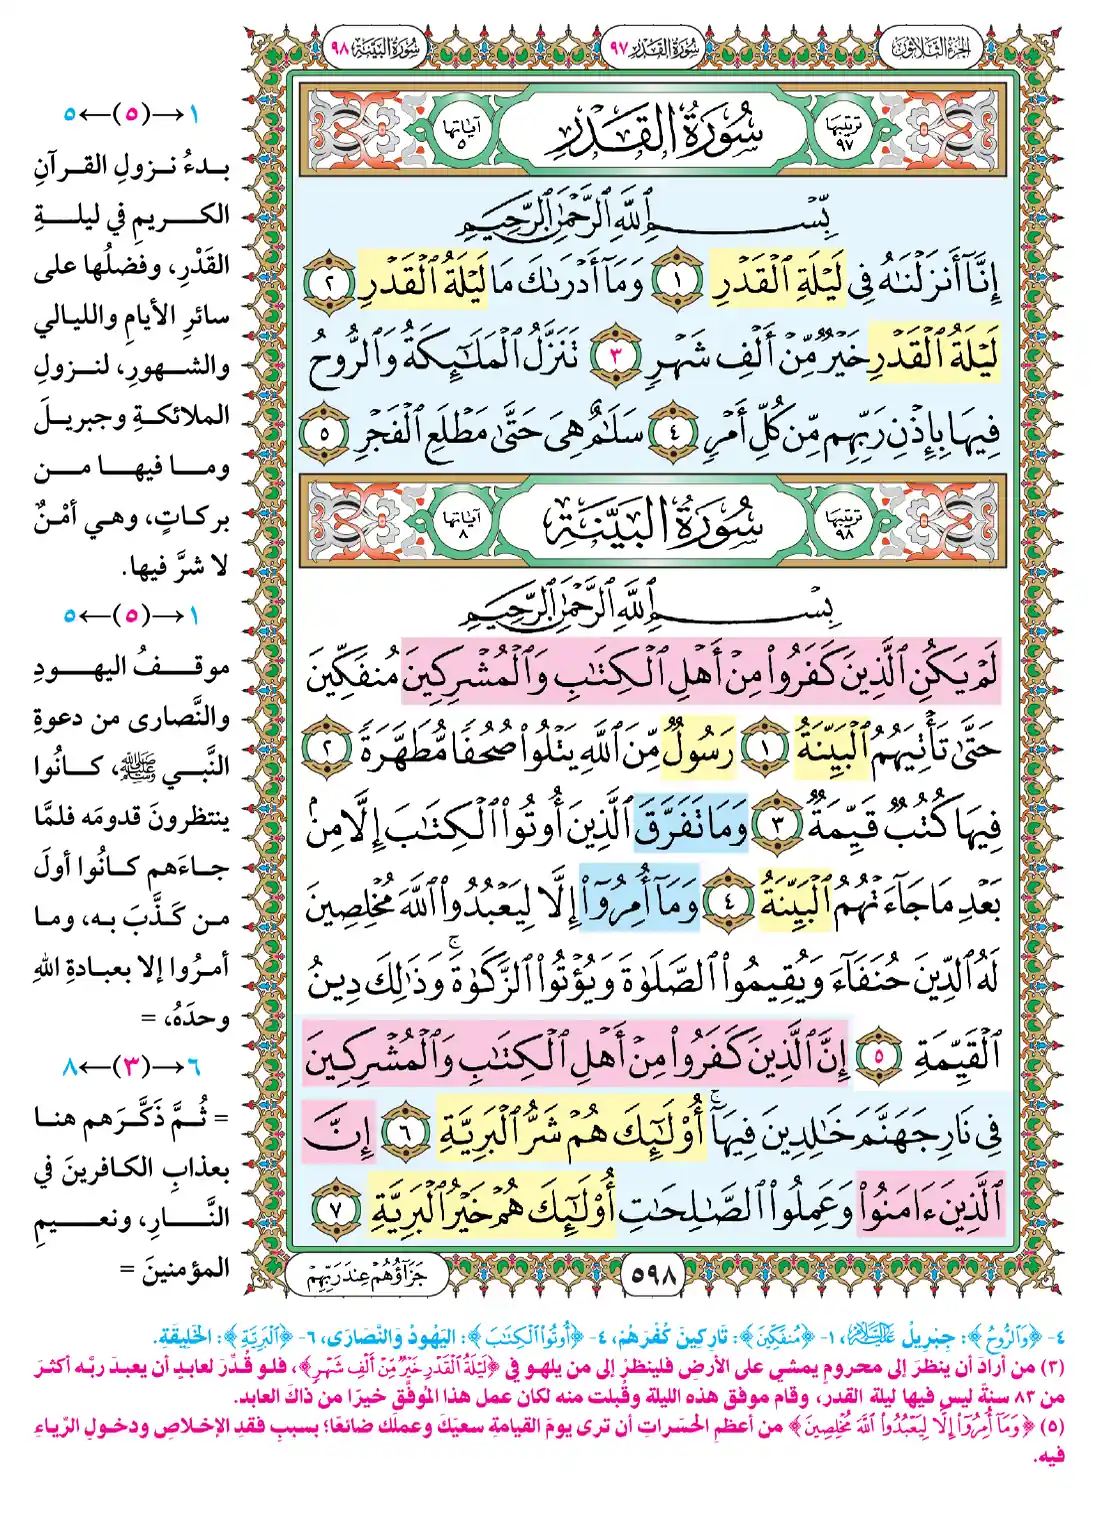 الجزء الثلاثون
سورة القدر ٩٧
سورة البينة ٩٨
ترتيبها ٩٧
سُورَةُ القَدْرِ
آياتها ٥
بِّسْمِ ٱللَّهِ ٱلرَّحْمَٰنِ ٱلرَّحِيمِ
إِنَّآ أَنزَلْنَٰهُ فِى لَيْلَةِ ٱلْقَدْرِ ١ وَمَآ أَدْرَىٰكَ مَا لَيْلَةُ ٱلْقَدْرِ ٢
لَيْلَةُ ٱلْقَدْرِ خَيْرٌ مِّنْ أَلْفِ شَهْرٍ ٣ تَنَزَّلُ ٱلْمَلَٰٓئِكَةُ وَٱلرُّوحُ
فِيهَا بِإِذْنِ رَبِّهِم مِّن كُلِّ أَمْرٍ ٤ سَلَٰمٌ هِىَ حَتَّىٰ مَطْلَعِ ٱلْفَجْرِ ٥
ترتيبها ٩٨
سُورَةُ البَيِّنَةِ
آياتها ٨
بِسْمِ ٱللَّهِ ٱلرَّحْمَٰنِ ٱلرَّحِيمِ
لَمْ يَكُنِ ٱلَّذِينَ كَفَرُوا۟ مِنْ أَهْلِ ٱلْكِتَٰبِ وَٱلْمُشْرِكِينَ مُنفَكِّينَ
حَتَّىٰ تَأْتِيَهُمُ ٱلْبَيِّنَةُ ١ رَسُولٌ مِّنَ ٱللَّهِ يَتْلُوا۟ صُحُفًا مُّطَهَّرَةً ٢
فِيهَا كُتُبٌ قَيِّمَةٌ ٣ وَمَا تَفَرَّقَ ٱلَّذِينَ أُوتُوا۟ ٱلْكِتَٰبَ إِلَّا مِنۢ
بَعْدِ مَا جَآءَتْهُمُ ٱلْبَيِّنَةُ ٤ وَمَآ أُمِرُوٓا۟ إِلَّا لِيَعْبُدُوا۟ ٱللَّهَ مُخْلِصِينَ
لَهُ ٱلدِّينَ حُنَفَآءَ وَيُقِيمُوا۟ ٱلصَّلَوٰةَ وَيُؤْتُوا۟ ٱلزَّكَوٰةَ ۚ وَذَٰلِكَ دِينُ
ٱلْقَيِّمَةِ ٥ إِنَّ ٱلَّذِينَ كَفَرُوا۟ مِنْ أَهْلِ ٱلْكِتَٰبِ وَٱلْمُشْرِكِينَ
فِى نَارِ جَهَنَّمَ خَٰلِدِينَ فِيهَآ ۚ أُو۟لَٰٓئِكَ هُمْ شَرُّ ٱلْبَرِيَّةِ ٦ إِنَّ
ٱلَّذِينَ ءَامَنُوا۟ وَعَمِلُوا۟ ٱلصَّٰلِحَٰتِ أُو۟لَٰٓئِكَ هُمْ خَيْرُ ٱلْبَرِيَّةِ ٧
٥٩٨
جَزَآؤُهُمْ عِندَ رَبِّهِمْ
١→(٥)←٥
بدءُ نزولِ القرآنِ
الكريمِ في ليلةِ
القَدْرِ، وفضلُها على
سائرِ الأيامِ والليالي
والشهورِ، لنزولِ
الملائكةِ وجبريلَ
وما فيها من
بركاتٍ، وهي أمْنٌ
لا شرَّ فيها.
١→(٥)←٥
موقفُ اليهودِ
والنَّصارى من دعوةِ
النَّبي ﷺ، كانُوا
ينتظرونَ قدومَه فلمَّا
جاءَهم كانُوا أولَ
من كَذَّبَ به، وما
أمرُوا إلا بعبادةِ اللهِ
وحدَهُ، =
٦→(٣)←٨
= ثُمَّ ذَكَّرَهم هنا
بعذابِ الكافرينَ في
النَّارِ، ونعيمِ
المؤمنينَ =
٤- ﴿وَٱلرُّوحُ﴾: جِبريلُ عليه السلام، ١- ﴿مُنفَكِّينَ﴾: تَارِكِينَ كُفْرَهُمْ، ٤- ﴿أُوتُوا۟ ٱلْكِتَٰبَ﴾: اليَهُودُ وَالنَّصَارَى، ٦- ﴿ٱلْبَرِيَّةِ﴾: الخَلِيقَةِ.
(٣) من أرادَ أن ينظرَ إلى محرومٍ يمشي على الأرضِ فلينظرْ إلى من يلهو في ﴿لَيْلَةُ ٱلْقَدْرِ خَيْرٌ مِّنْ أَلْفِ شَهْرٍ﴾، فلو قُدِّرَ لعابدٍ أن يعبدَ ربَّه أكثرَ
من ٨٣ سنةً ليس فيها ليلة القدرِ، وقام موفق هذه الليلة وقُبلت منه لكان عمل هذا الموفَّقِ خيرًا من ذاكَ العابد.
(٥) ﴿وَمَآ أُمِرُوٓا۟ إِلَّا لِيَعْبُدُوا۟ ٱللَّهَ مُخْلِصِينَ﴾ من أعظمِ الحسَراتِ أن ترى يومَ القيامةِ سعيَكَ وعملَكَ ضائعًا؛ بسببِ فقدِ الإخلاصِ ودخولِ الرِّياءِ
فيه.